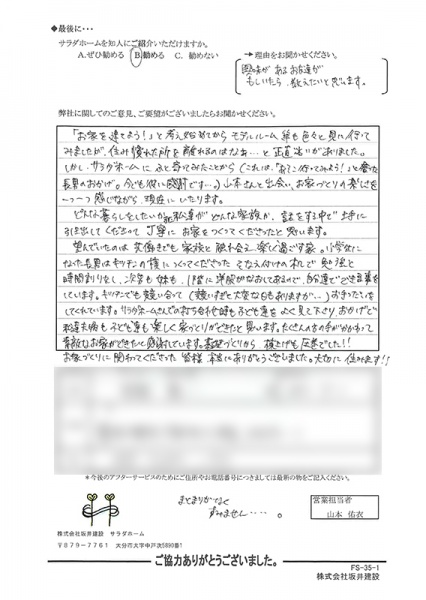 ◆最後に・・・
サラダホームを知人にご紹介いただけますか。
A.ぜひ勧める B.勧める C.勧めない
→理由をお聞かせください。
興味があるお友達が
もしいたら、教えたいと思います。
弊社に関してのご意見、ご要望がございましたらお聞かせください。
「お家を建てよう!」と考え始めてからモデルルーム等も色々と見に行って
みましたが、住み慣れた所を離れるのはなぁ…と正直迷いがありました。
しかし、サラダホームにふと寄ってみたことから(これは、「ここ行ってみよう!」と言った
長男のおかげ。今でも彼に感謝です…。)山本さんと出会い、お家づくりの楽しさを
一つ一つ感じながら現在にいたります。
どんな暮らしをしたいか、私達がどんな家族か、話をする中で上手に
引き出してくださって丁寧にお家をつくってくださったと思います。
望んでいたのは実価までも家族と触れ合え、楽しく過ごす家。小学生に
なった長男はキッチンの横につくってくださったそなえ付けの机で勉強と
時間割りをし、次男も妹も、1階に洋服がなおしてあるので、自分達でできる事を
しています。キッチンでも競い合って(競いすぎて大変な日もありますが…)お手つだいを
してくれています。サラダホームさんでの打ち合わせ時も子ども達をよく見て下さり、おかげで
私達夫婦も子ども達も楽しく家づくりができたと思います。たくさんの方の手がかかわって
素敵なお家ができたと感謝しています。基礎づくりから棟上げも圧巻でした!!
お家づくりに関わってくださった皆様、本当にありがとうございました。大切に住みます!!
*今後のアフターサービスのためにご住所やお電話番号につきましては最新の物をご記入ください。
まとまりがなく
すみません・・・。
営業担当者
山本 佑衣
株式会社坂井建設 サラダホーム
〒879-7761 大分市大字中戸次5890番1
ご協力ありがとうございました。
FS-35-1
株式会社坂井建設